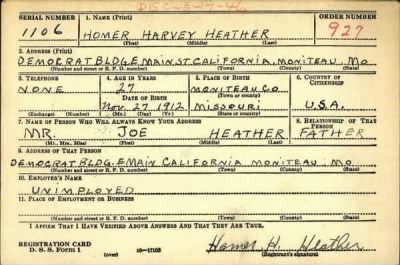 DISC-5-17-46
SERIAL NUMBER 1. NAME (Print) ORDER NUMBER
1106 HOMER HARVEY HEATHER 927
(First) (Middle) (Last)
2. ADDRESS (Print)
DEMOCRAT BLDG. E MAIN ST. CALIFORNIA, MONITEAU, MO.
(Number and street or R. F. D. number) (Town) (County) (State)
3. TELEPHONE 4. AGE IN YEARS 5. PLACE OF BIRTH 6. COUNTRY OF CITIZENSHIP
NONE 27 MONITEAU CO
DATE OF BIRTH (Town or county)
Nov. 27 1912 MISSOURI U.S.A.
(Exchange) (Number) (Mo.) (Day) (Yr.) (State or country)
7. NAME OF PERSON WHO WILL ALWAYS KNOW YOUR ADDRESS 8. RELATIONSHIP OF THAT PERSON
MR. JOE HEATHER FATHER
(Mr., Mrs., Miss) (First) (Middle) (Last)
9. ADDRESS OF THAT PERSON
DEMOCRAT BLDG. E MAIN CALIFORNIA MONITEAU, MO
(Number and street or R. F. D. number) (Town) (County) (State)
10. EMPLOYER'S NAME
UNIMPLOYED
11. PLACE OF EMPLOYMENT OR BUSINESS
(Number and street or R. F. D. number) (Town) (County) (State)
I AFFIRM THAT I HAVE VERIFIED ABOVE ANSWERS AND THAT THEY ARE TRUE.
REGISTRATION CARD
D. S. S. Form 1 (over) 16-17105 Homer H. Heather
(Registrant's signature)